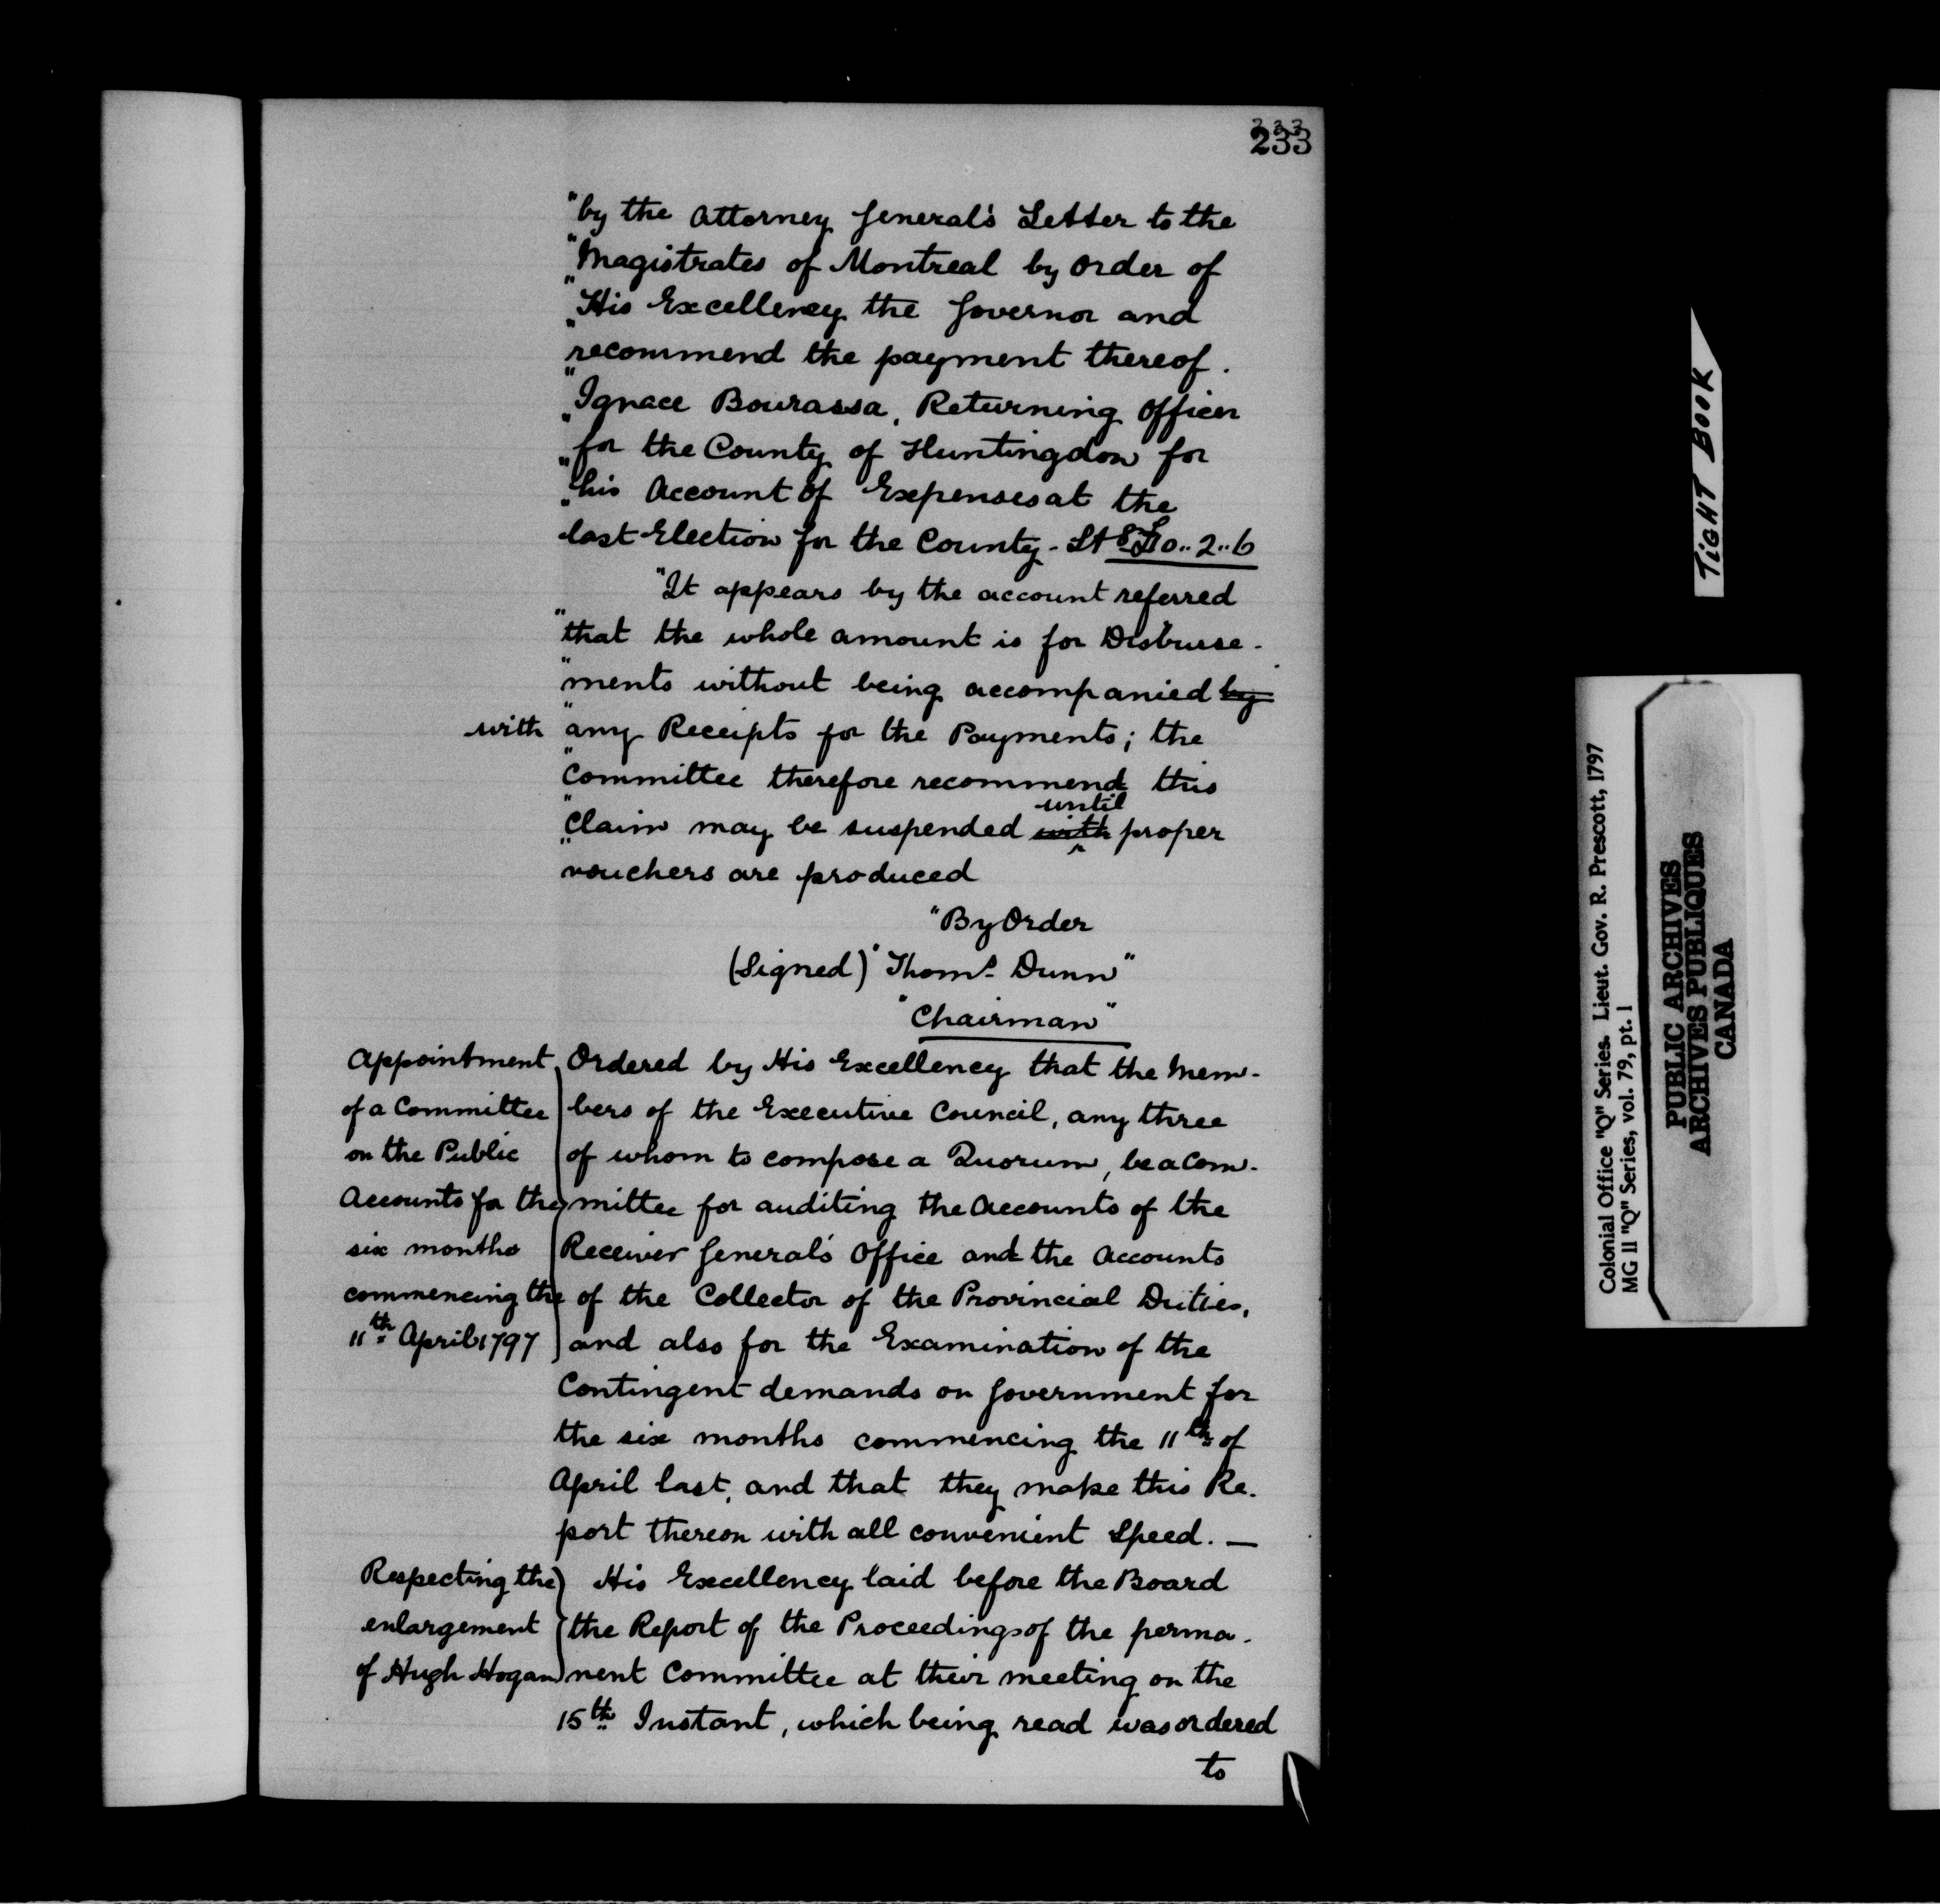 233
"by the Attorney General's Letter to the
"Magistrates of Montreal by order of
"His Excellency the Governor and
"recommend the payment thereof.
"Ignace Bourassa, Returning Officer
"for the County of Huntingdon for
"his Account of Expenses at the
last Election for the County - 0..2..6
"It appears by the account referred
"that the whole amount is for Disburse-
"ments without being accompanied by
with "any Receipts for the Payments; the
"Committee therefore recommend this
until
"Claim may be suspended with proper
"vouchers are produced
"By Order
(Signed) "Thoms. Dunn"
"Chairman"
Appointment
of a Committee
on the Public
Accounts for the
six months
commencing the
11th April 1797
Ordered by His Excellency that the Mem-
bers of the Executive Council, any three
of whom to compose a Quorum, be a Com-
mittee for auditing the Accounts of the
Receiver General's Office and the Accounts
of the Collector of the Provincial Duties,
and also for the Examination of the
Contingent demands on Government for
the six months commencing the 11th of
April last, and that they make this Re-
port thereon with all convenient Speed. —
Respecting the
enlargement
of Hugh Hogan
His Excellency laid before the Board
the Report of the Proceedings of the perma-
nent Committee at their meeting on the
15th Instant, which being read was ordered
to
TIGHT BOOK
Colonial Office "Q" Series. Lieut. Gov. R. Prescott, 1797
MG 11 "Q" Series, vol. 79, pt. 1
PUBLIC ARCHIVES
ARCHIVES PUBLIQUES
CANADA